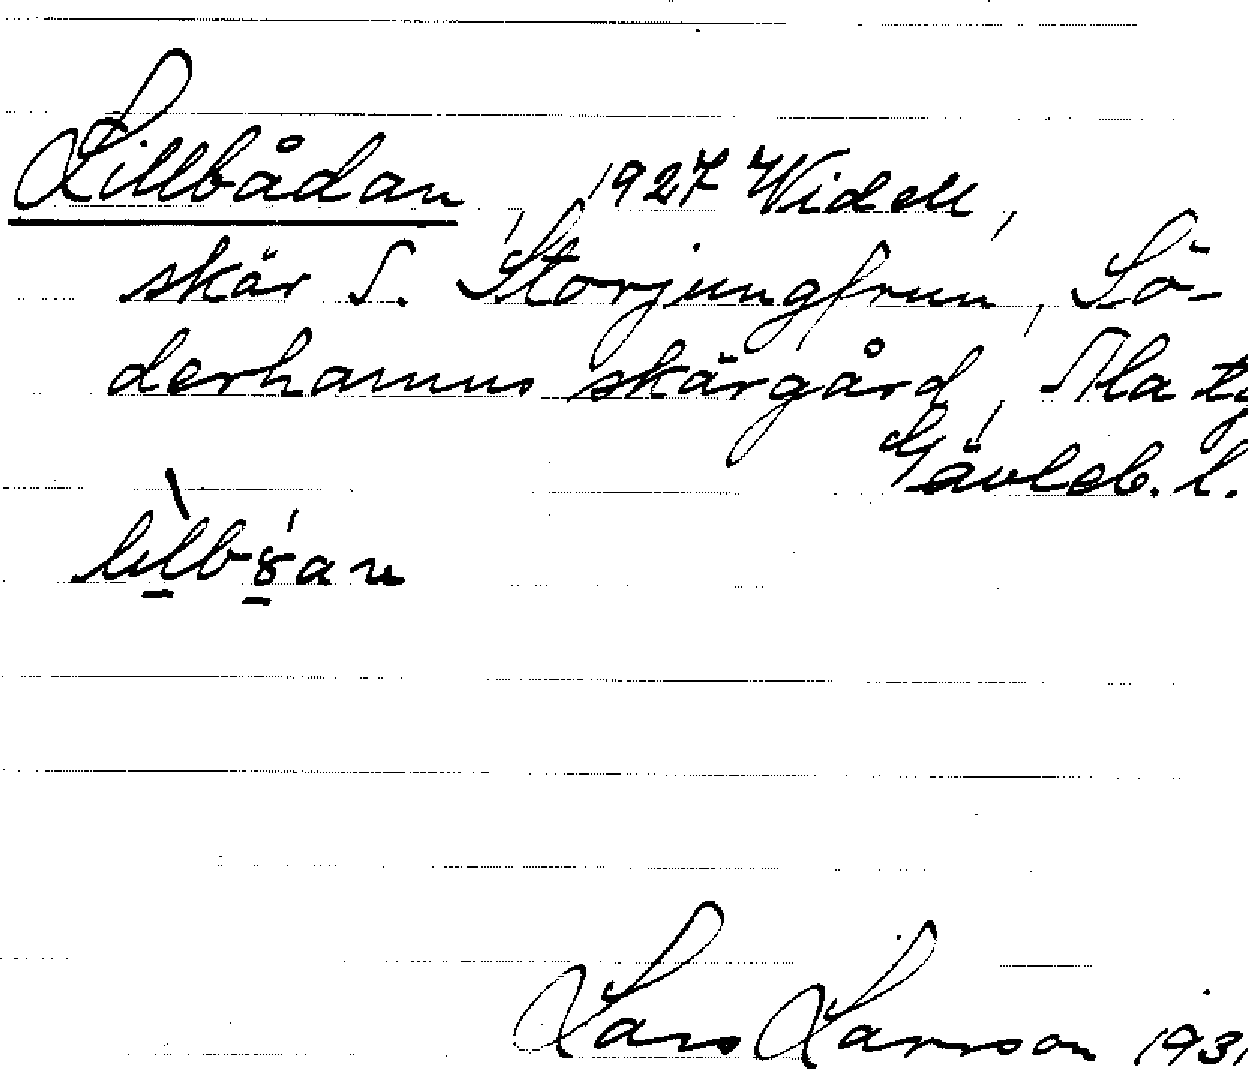 Lillbådan, 1927 Widell,
skär S. Storjungfrun, Sö-
derhamns skärgård, Ala
Gävleb. l.
Lars Larsson 1931